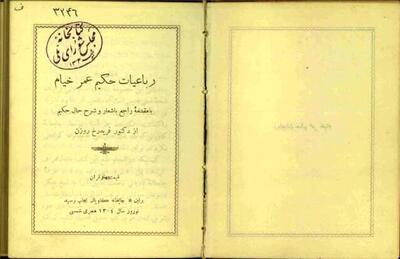 ۳۲۴۶
کتابخانه
مجلس شورای ملی
رباعیات حکیم عمر خیام
بامقدمهٔ راجع باشعار و شرح حال حکیم
از دکتور فریدرخ روزن
برلین
چاپخانه کاویانی بچاپ رسید
نوروز سال ۱۳۰٤ هجری شمسی